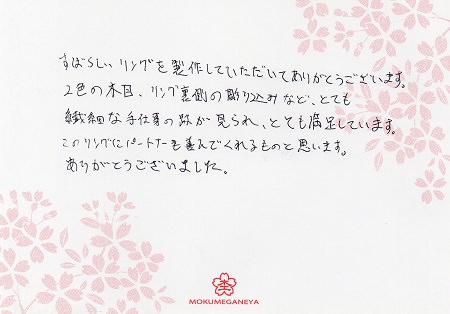 すばらしいリングを製作していただいてありがとうございます。
2色の木目、リング裏側の彫り込みなど、とても
繊細な手仕事の跡が見られ、とても満足しています。
このリングにパートナーも喜んでくれるものと思います。
ありがとうございました。
MOKUMEGANEYA